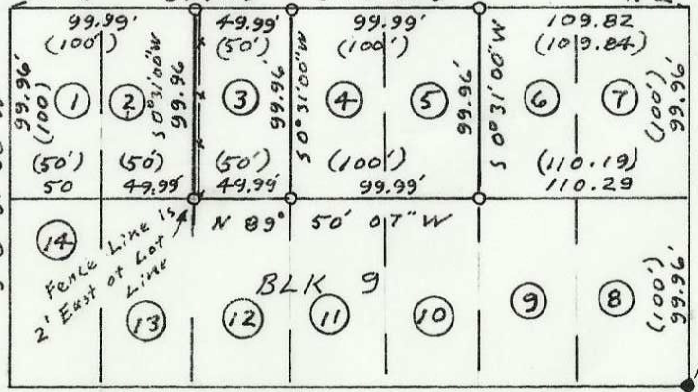 99.99' 49.99' 99.99' 109.82
(100') (50') (100') (109.84)
99.96' (100) 1 2 S 0° 31'00"W 99.96 3 99.96' S 0° 31'00"W 4 5 99.96' S 0° 31'00"W 6 7 (100') 99.96'
(50') (50') (50') (100') (110.19)
50 49.99' 49.99' 99.99' 110.29
N 89° 50' 07" W
14
Fence Line is
2' East of Lot
Line
BLK 9
13 12 11 10 9 8 (100') 99.96'